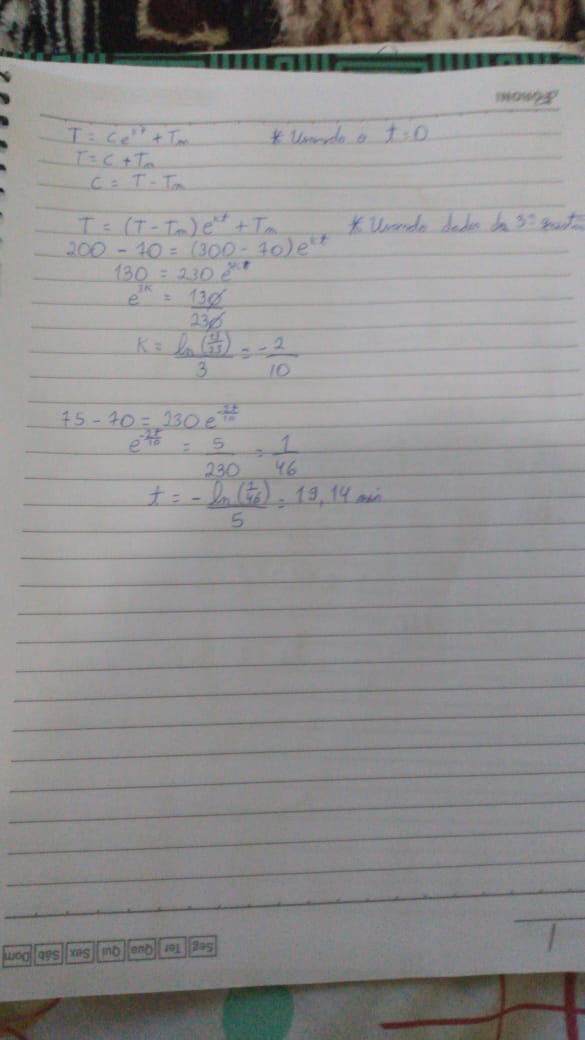 T = Ce^{kt} + Tₘ * Usando o t = 0
T = C + Tₘ
C = T - Tₘ
T = (T - Tₘ)e^{kt} + Tₘ * Usando dados da 3ª
200 - 70 = (300 - 70)e^{kt}
130 = 230 e^{3k}
e^{3k} = 130/230
K = ln(13/23)/3 = -2/10
75 - 70 = 230 e^{-2t/10}
e^{-2t/10} = 5/230 = 1/46
t = - ln(1/46)/5 = 19,14 min
Seg Ter Qua Qui Sex Sáb Dom